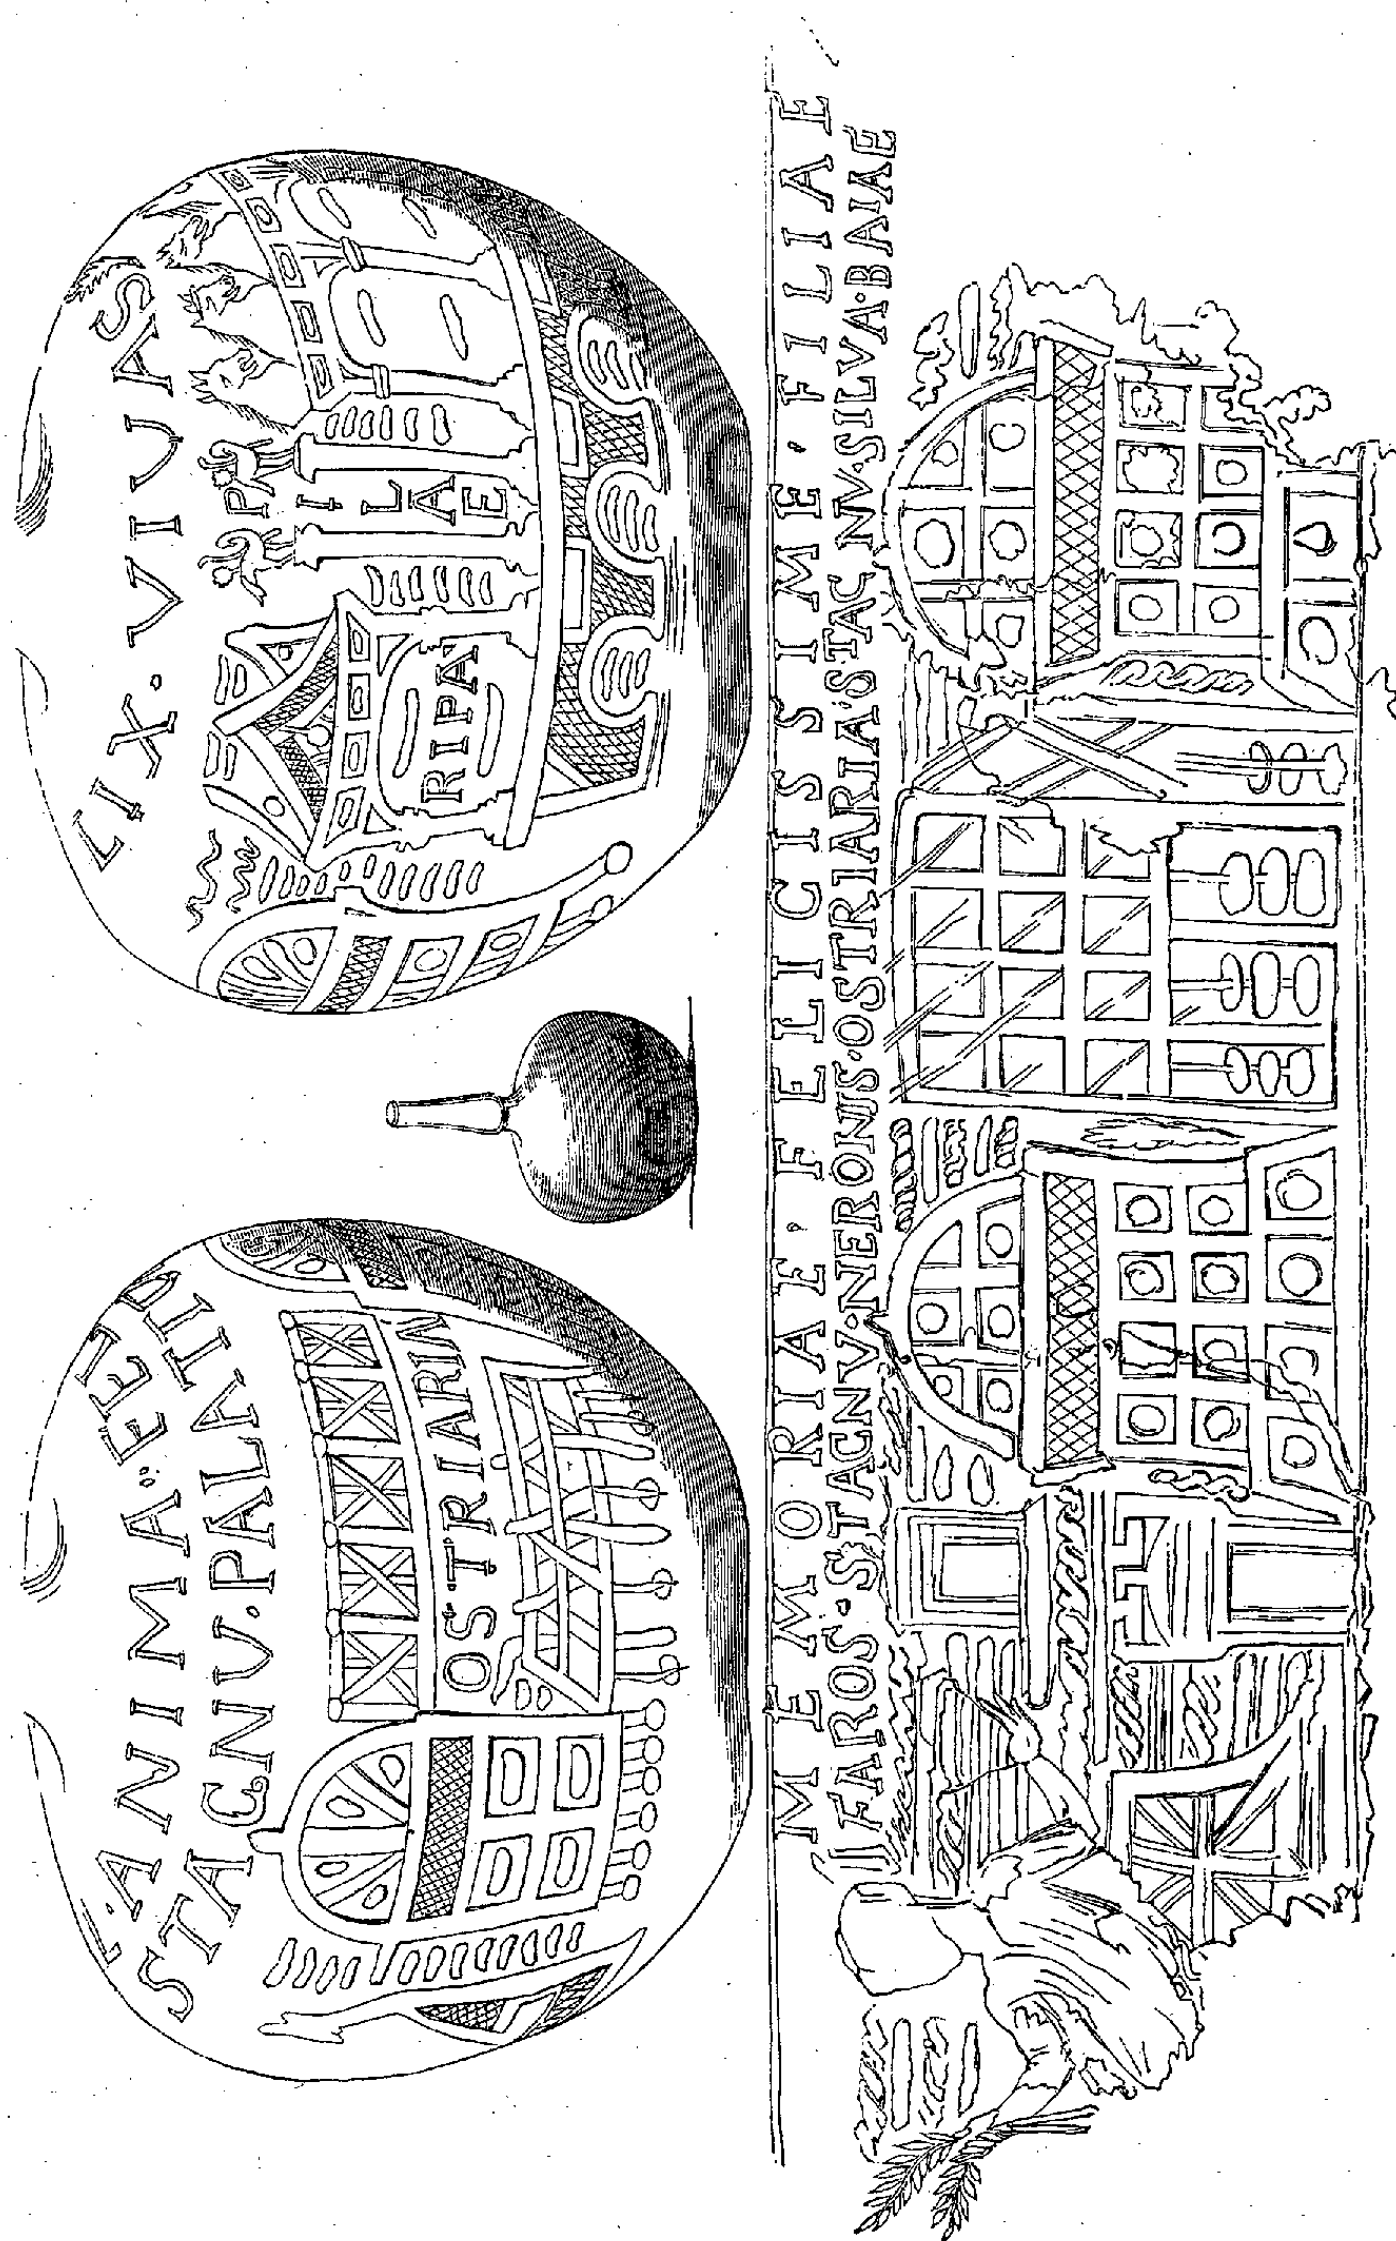 ANIMA·FE
STAGNV·PALATI
OSTRIARIA
LIX·VIVAS
PILAE
RIPA
MEMORIAE·FELICISSIME·FILIAE
FAROS·STAGNV·NERONIS·OSTRIARIA·STAGNV·SILVA·BAIAE